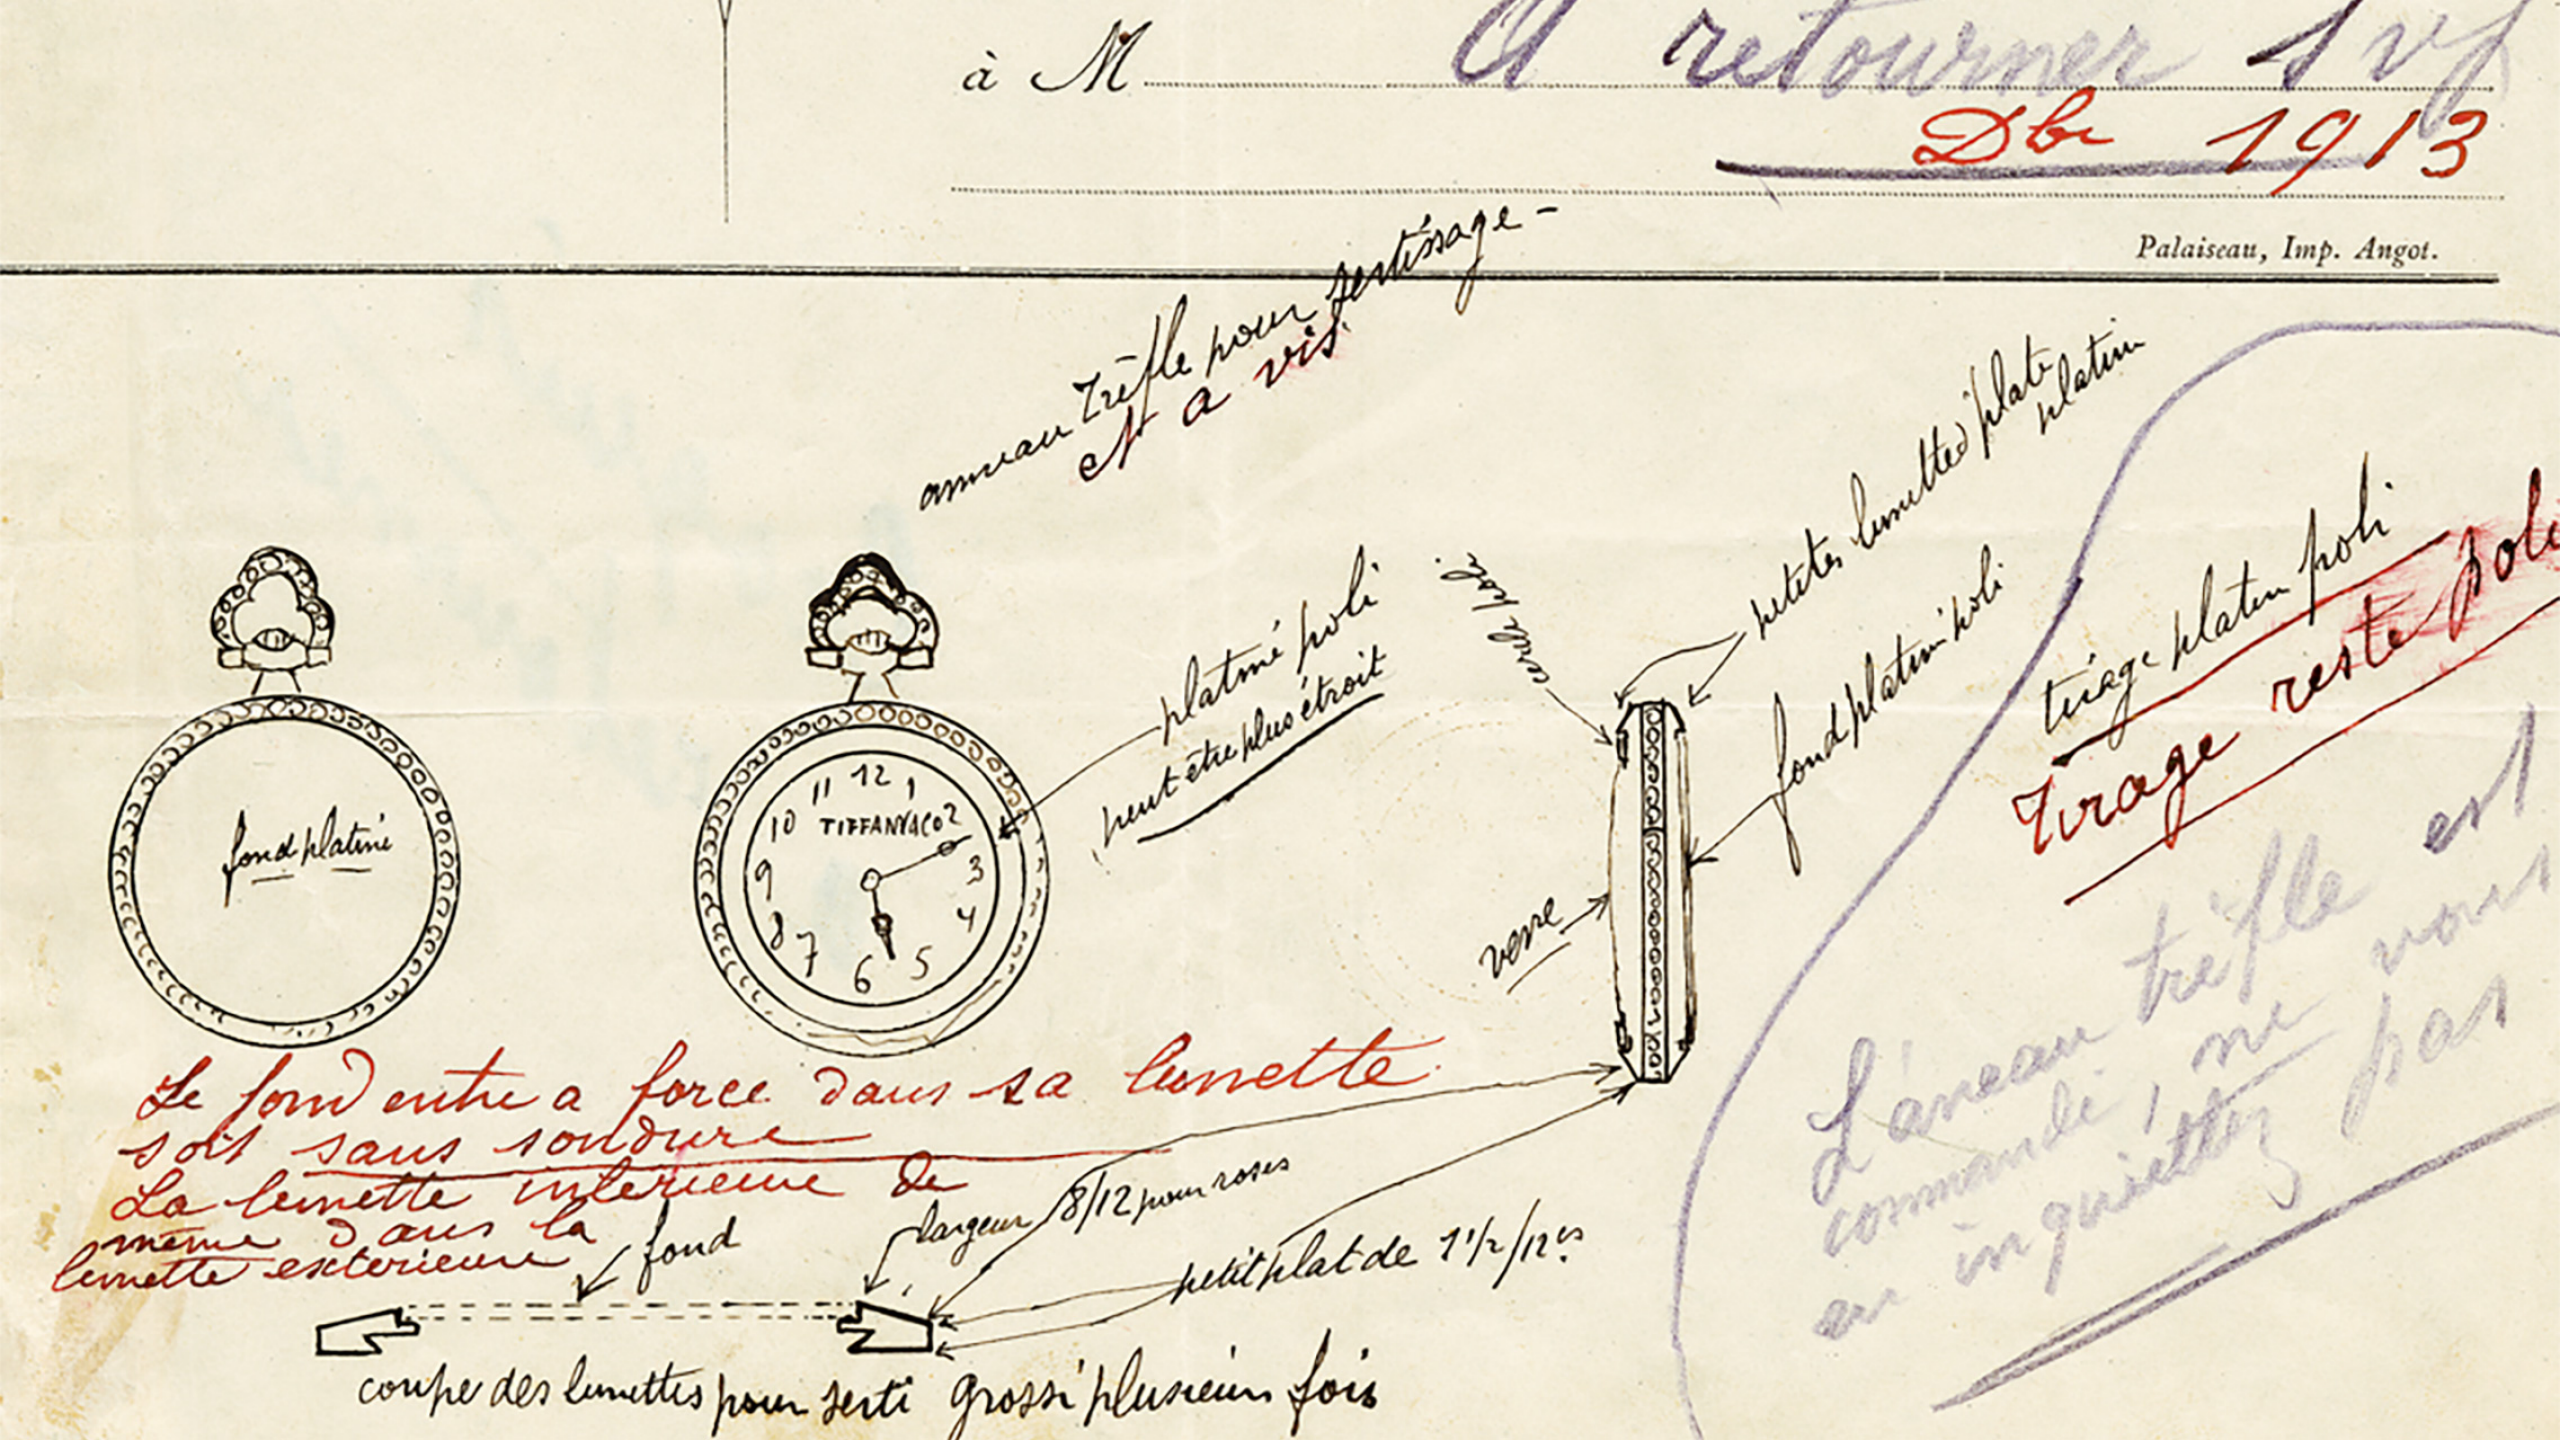 à M
A retourner svp
Dbr 1913
Palaiseau, Imp. Angot.
anneau Trêfle pour sertissage -
et a vis
petites lunettes plate
platine
cercle poli
platiné poli
peut être plus étroit
fond platine poli
tirage platine poli
Tirage reste poli
12
11 1
10 TIFFANY&CO 2
9 3
8 4
7 5
6
fond platiné
verre
L'aneau trêfle est
commandé, ne vous
en inquiettez pas
Le fond entre a force dans sa lunette
soit sans soudure
La lunette interieure de
même dans la
lunette exterieure
fond
largeur 8/12 pour roses
petit plat de 1 1/2/12es
coupe des lunettes pour serti grossi plusieurs fois